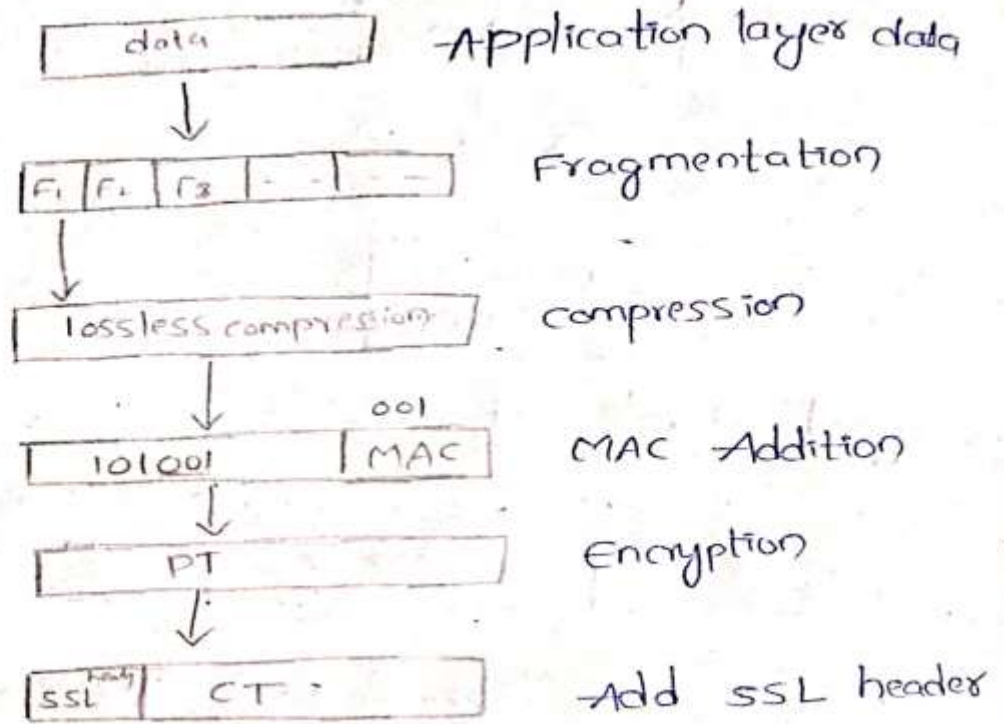 data Application layer data
F1 F2 F3 - - - - Fragmentation
lossless compression compression
001
101001 MAC MAC Addition
PT Encryption
SSL header CT Add SSL header